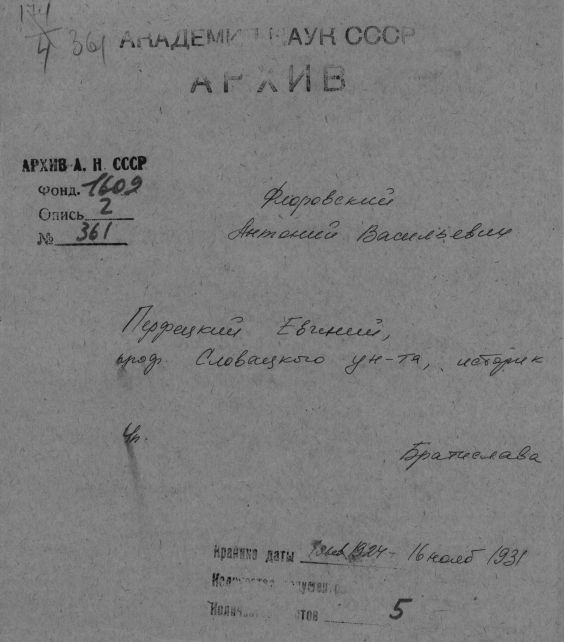 4 361 АКАДЕМИЯ НАУК СССР
АРХИВ
АРХИВ А. Н. СССР
Фонд. 1609
Опись 2
№ 361
Флоровский
Антоний Васильевич
Перфецкий Евгений,
проф Словацкого ун-та, историк
Братислава
Крайние даты 1924 - 16 нояб 1931
Количество документов
Количество листов 5